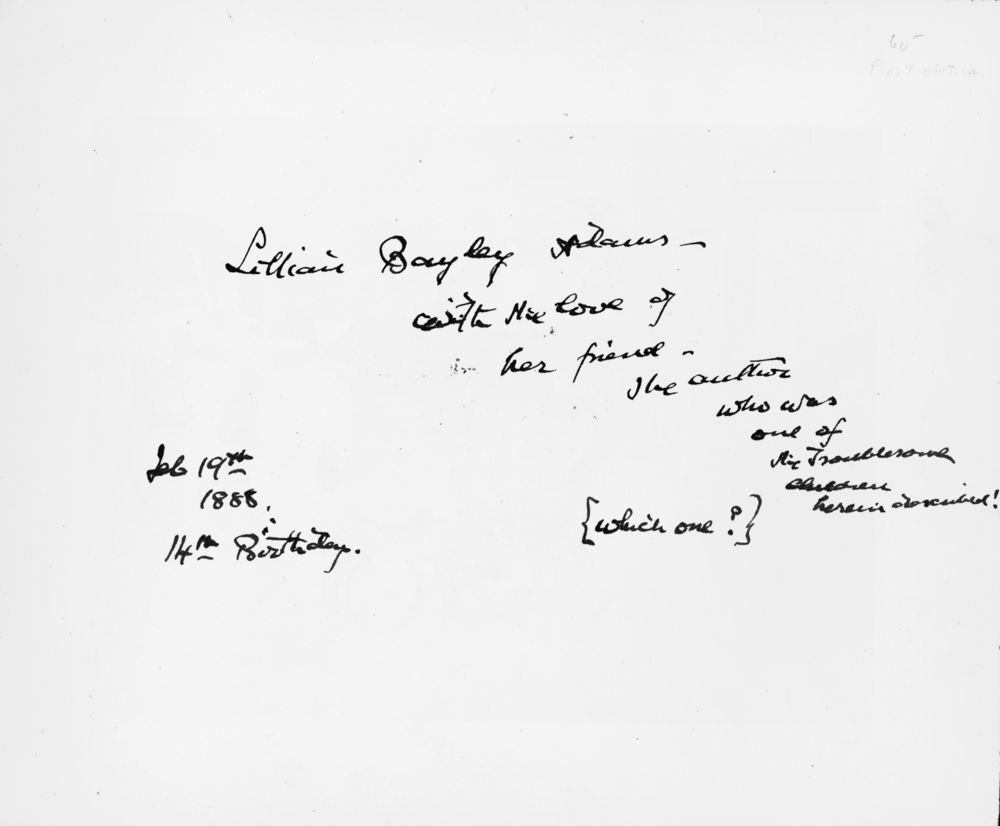 60
FIRST EDITION
Lillian Bayley Adams –
with the love of
her friend –
The author
who was
one of
the Troublesome
children
herein described!
{which one?}
Feb 19th
1888.
14th Birthday.